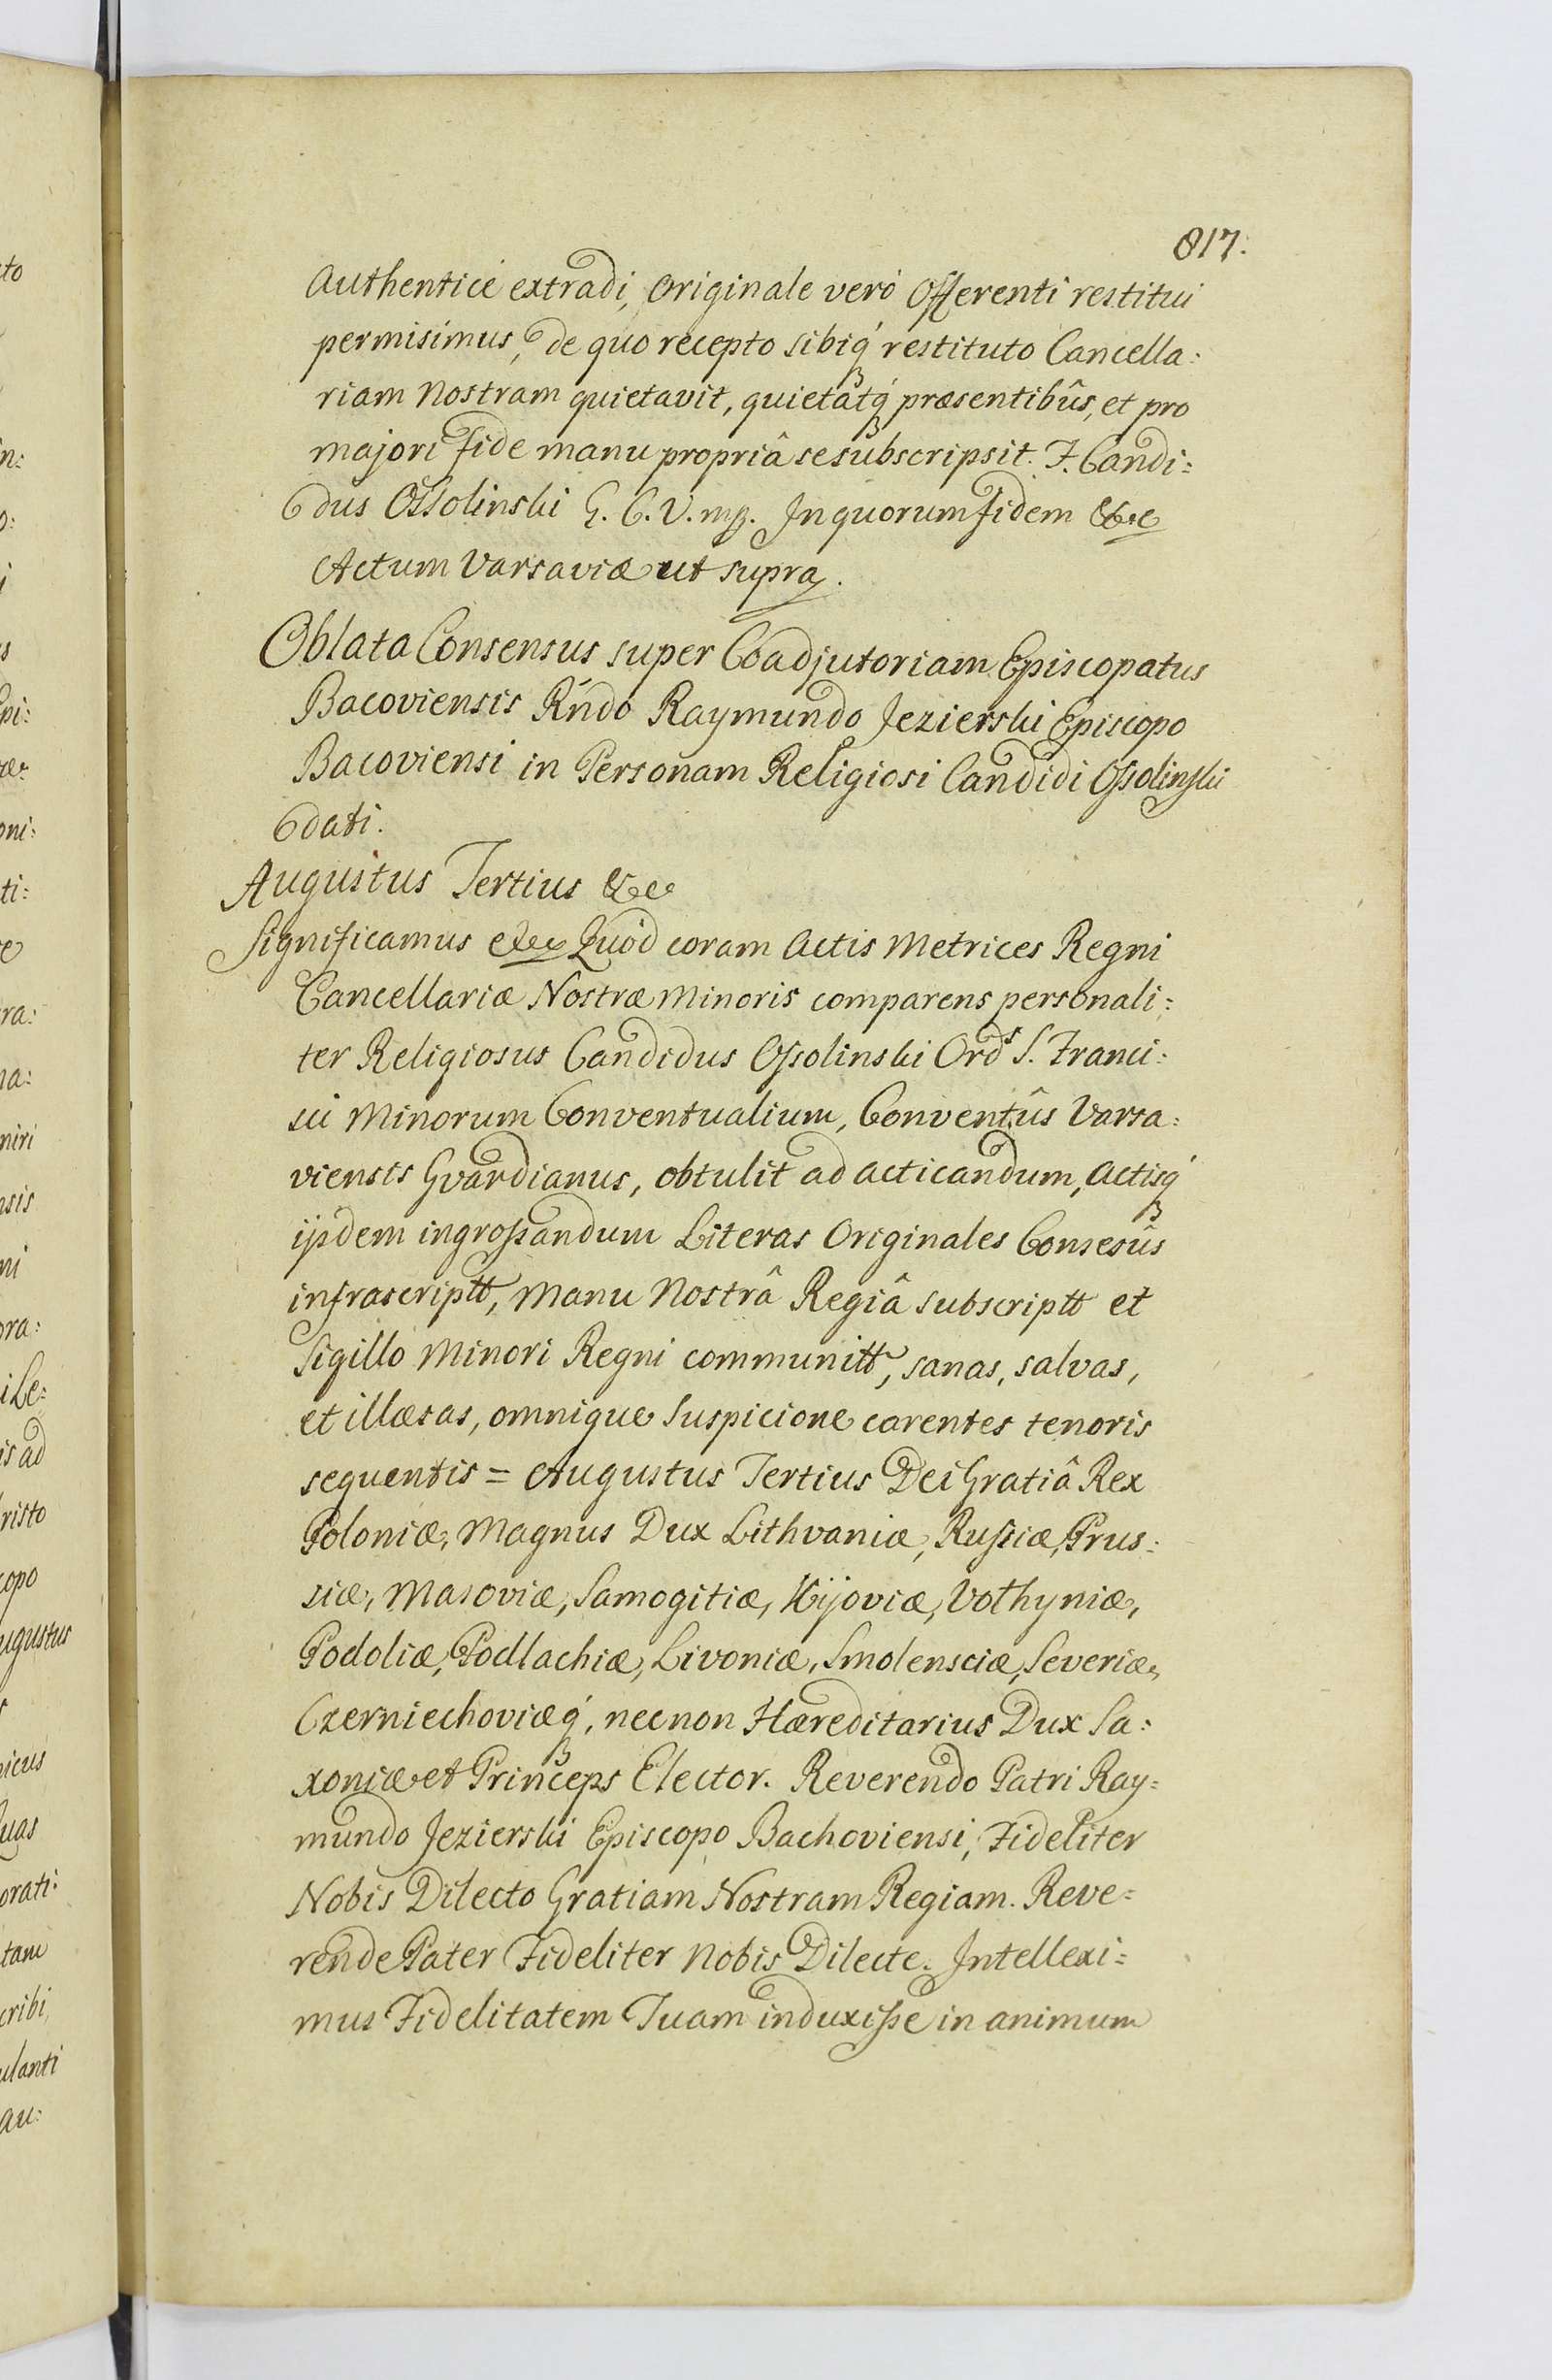 817.
Authenticè extradi, Originale verò Offerenti restitui
permisimus, de quo recepto sibiq́ restituto Cancella:
riam Nostram quietavit, quietatq́ præsentibûs, et pro
majori fide manu propriâ se subscripsit. F. Candi:
dus Ossolinski G. C. V. mp. In quorum fidem &c
Actum Varsaviæ ut supra.
Oblata Consensus super Coadjutoriam Episcopatus
Bacoviensis Rńdo Raymundo Jezierski Episcopo
Bacoviensi in Personam Religiosi Candidi Ossolinski
dati.
Augustus Tertius &c
Significamus &c Quòd coram Actis Metrices Regni
Cancellariæ Nostræ Minoris comparens personali:
ter Religiosus Candidus Ossolinski Ords S. Franci:
sci Minorum Conventualium, Conventûs Varsa:
viensis Gvardianus, obtulit ad acticandum, Actisq́
ijsdem ingrossandum Literas Originales Consesûs
infrascriptt, Manu Nostrâ Regiâ subscriptt et
Sigillo Minori Regni communitt, sanas, salvas,
et illæsas, omnique suspicione carentes tenoris
sequentis = Augustus Tertius Dei Gratiâ Rex
Poloniæ, Magnus Dux Lithvaniæ, Russiæ, Prus:
siæ, Masoviæ, Samogitiæ, Kijoviæ, Volhyniæ,
Podoliæ, Podlachiæ, Livoniæ, Smolensciæ, Severiæ,
Czerniechoviæq́, necnon Hæreditarius Dux Sa:
xoniæ et Princeps Elector. Reverendo Patri Ray:
mundo Jezierski Episcopo Bachoviensi, Fideliter
Nobis Dilecto Gratiam Nostram Regiam. Reve:
rende Pater Fideliter Nobis Dilecte. Intellexi:
mus Fidelitatem Tuam induxisse in animum